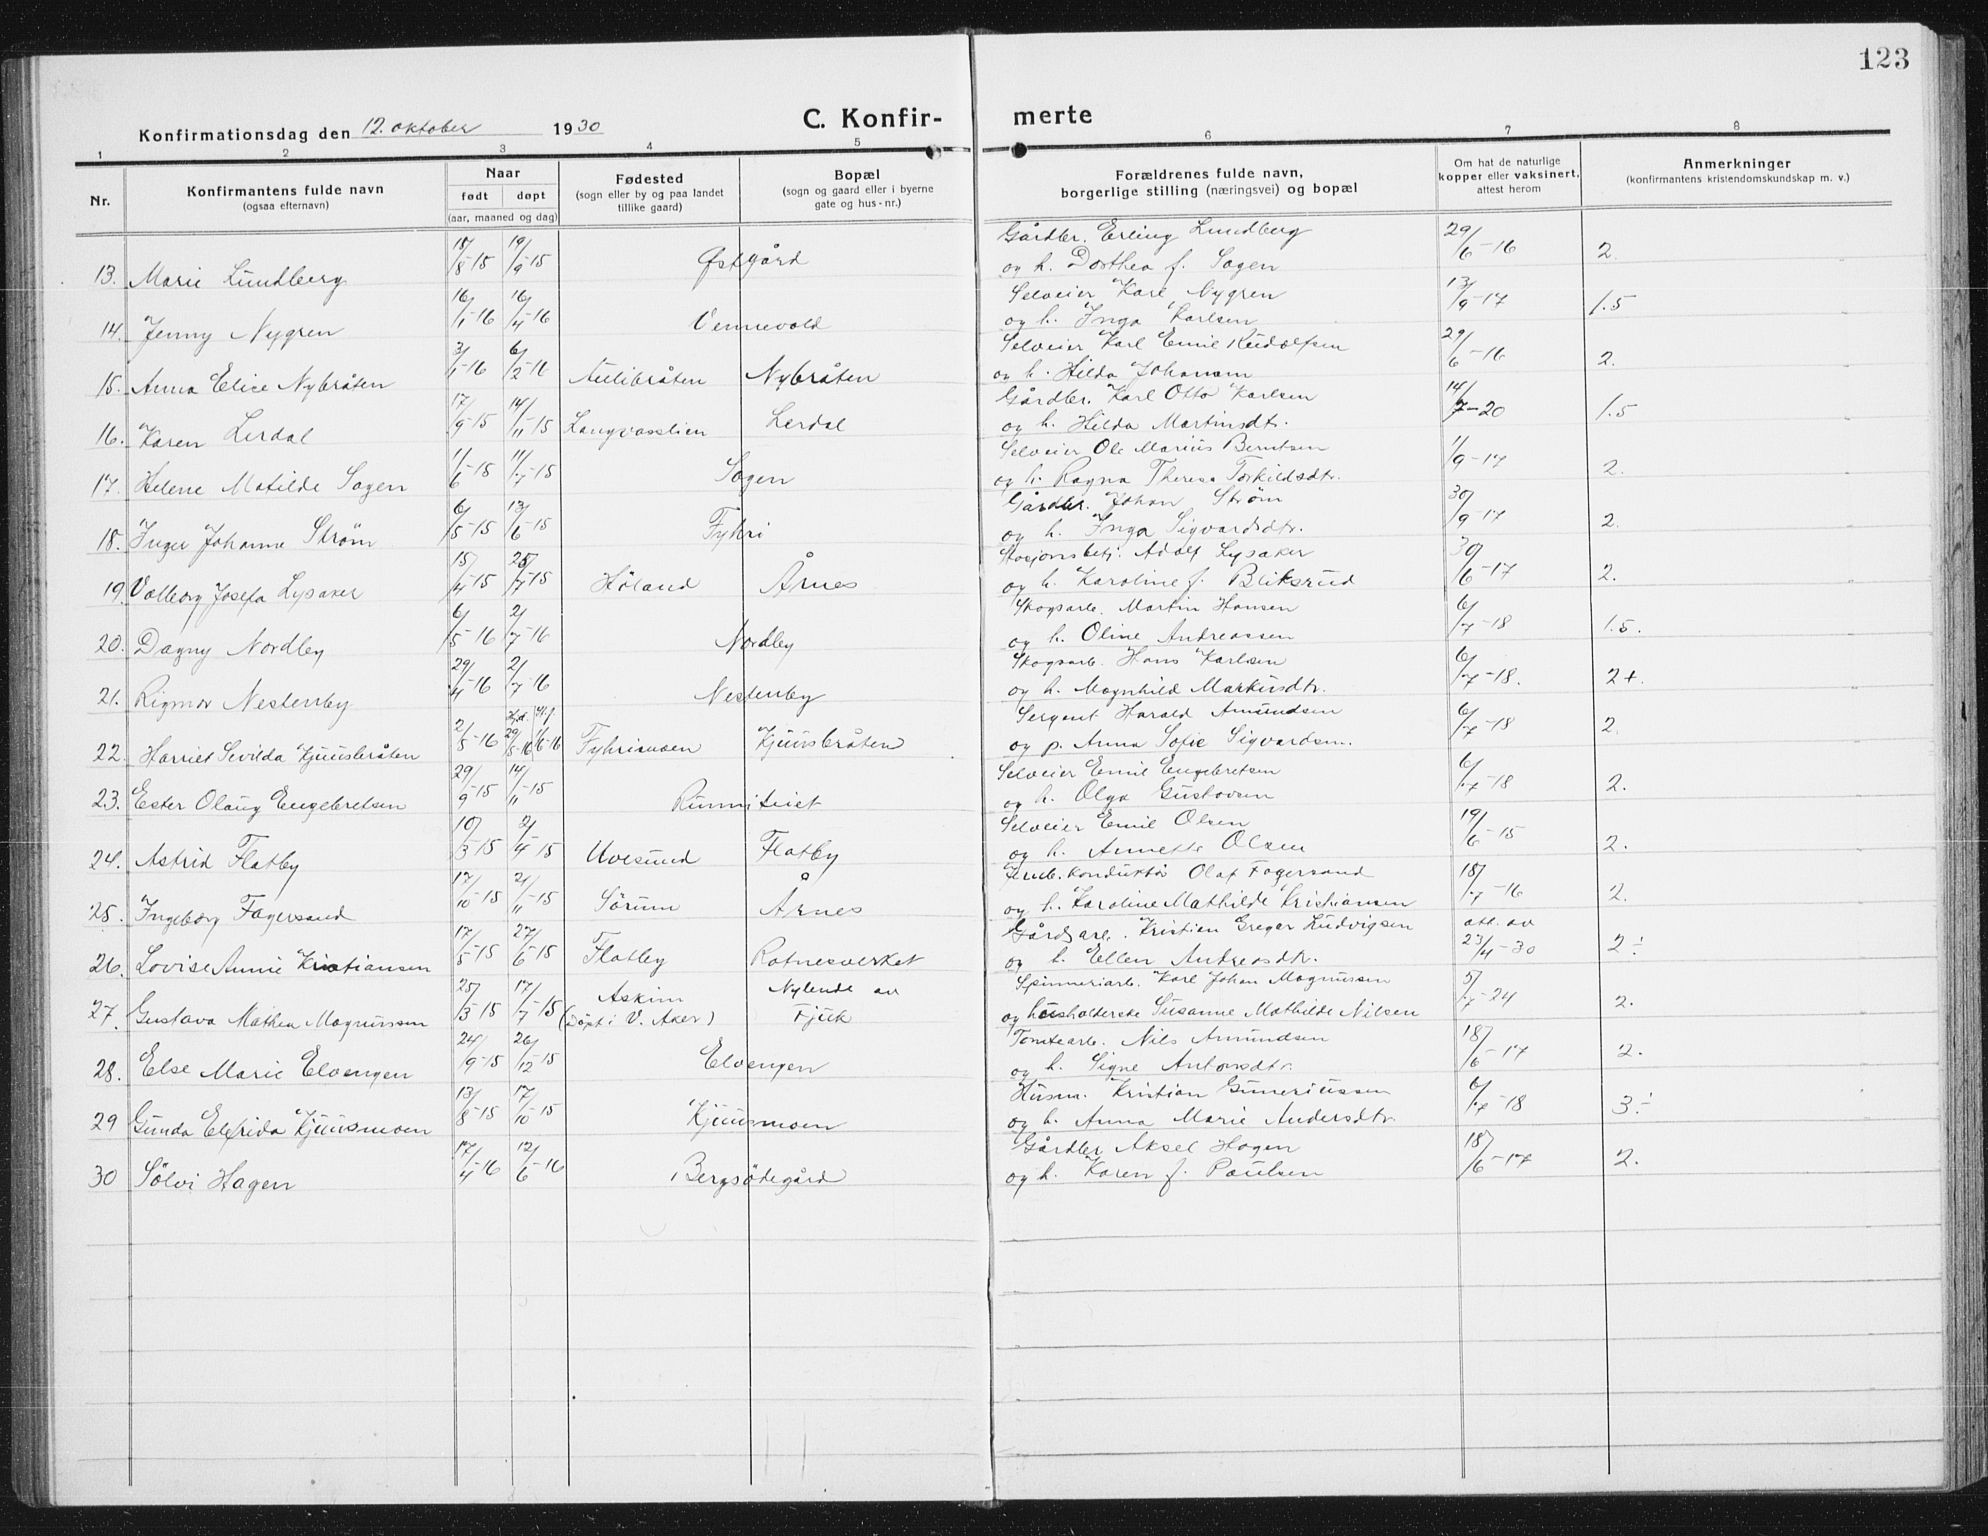 123
C. Konfir- merte
Konfirmationsdag den 12. oktober 1930
1 2 3 4 5 6 7 8
Nr.
Konfirmantens fulde navn
(ogsaa efternavn)
Naar
født døpt
(aar, maaned og dag)
Fødested
(sogn eller by og paa landet
tillike gaard)
Bopæl
(sogn og gaard eller i byerne
gate og hus-nr.)
Forældrenes fulde navn,
borgerlige stilling (næringsvei) og bopæl
Om hat de naturlige
kopper eller vaksinert,
attest herom
Anmerkninger
(konfirmantens kristendomskundskap m. v.)
Gårdbr. Erling Lundberg
13. Marie Lundberg 18/8-15 19/9-15 Østgård og h. Dorthea f. Sagen 29/6-16 2.
Selveier Karl Nygren
14. Jenny Nygren 16/1-16 16/4-16 Vennevold og h. Inga Karlsen 13/9-17 1.5
Selveier Karl Emil Rudolfsen
15. Anna Elise Nybråten 3/1-16 6/2-16 Aulibråten Nybråten og h. Hilda Johansen 29/6-16 2.
Gårdbr. Karl Otto Karlsen
16. Karen Lerdal 17/9-15 14/11-15 Langvasslien Lerdal og h. Hilda Martinsdtr. 14/7-20 1.5
Selveier Ole Marius Berntsen
17. Helene Matilde Sagen 11/6-15 11/7-15 Sagen og h. Ragna Theresa Torkildsdtr. 11/9-17 2.
Gårdbr. Johan Strøm
18. Inger Johanne Strøm 6/5-15 13/6-15 Fyhri og h. Inga Sigvardsdtr. 30/9-17 2.
Stasjonsbetj. Adolf Lysaker
19. Valborg Josefa Lysaker 15/4-15 25/7-15 Høland Årnes og h. Karoline f. Bliksrud 30/6-17 2.
Skogsarb. Martin Hansen
20. Dagny Nordby 6/5-16 2/7-16 Nordby og h. Oline Andreassen 6/7-18 1.5.
Skogsarb. Hans Karlsen
21. Rigmor Nestenby 29/4-16 2/7-16 Nestenby og h. Magnhild Markusdtr. 6/7-18. 2+.
Sergent Harald Amundsen
22. Harriet Sevilda Kjuusbråten 2/5-16 Hjd. 29/5-16 St.f. 1/6-16 Fyhrismoen Kjuusbråten og p. Anna Sofie Sigvardsen. 6/7-18 2.
Selveier Emil Engebretsen
23. Ester Olaug Engebretsen 29/9-15 14/11-15 Runniteiet og h. Olga Gustavsen 6/7-18 2.
Selveier Emil Olsen
24. Astrid Flatby 10/3-15 2/4-15 Uvesund Flatby og h. Annette Olsen 19/6-15 2.
Jernb.konduktør Olaf Fagersand
25. Ingeborg Fagersand 17/10-15 21/11-15 Sørum Årnes og h. Karoline Mathilde Kristiansen 18/7-16 2.
Gårdsarb. Kristian Greger Ludvigsen
26. Lovise Annie Kristiansen 17/5-15 27/6-15 Flatby Ratnesverket og h. Ellen Andreasdtr. att. av 23/4-30 2÷
Spinneriarb. Karl Johan Magnussen
27. Gustava Mathea Magnussen 25/3-15 17/7-15 Askim (Døpt i V. Aker) Nylende av Fjuk og husholderske Susanne Mathilde Nilsen 5/7-24 2.
Tomtearb. Nils Amundsen
28. Else Marie Elvengen 24/9-15 26/12-15 Elvengen og h. Signe Antonsdtr. 18/6-17 2.
Husm. Kristian Guneriussen
29 Gunda Elfrida Kjuusmoen 13/8-15 17/10-15 Kjuusmoen og h. Anna Marie Andersdtr. 6/7-18 3÷
Gårdbr Aksel Hagen
30 Sölvi Hagen 17/4-16 12/6-16 Bergsödegård og h. Karen f. Paulsen 18/6-17 2.